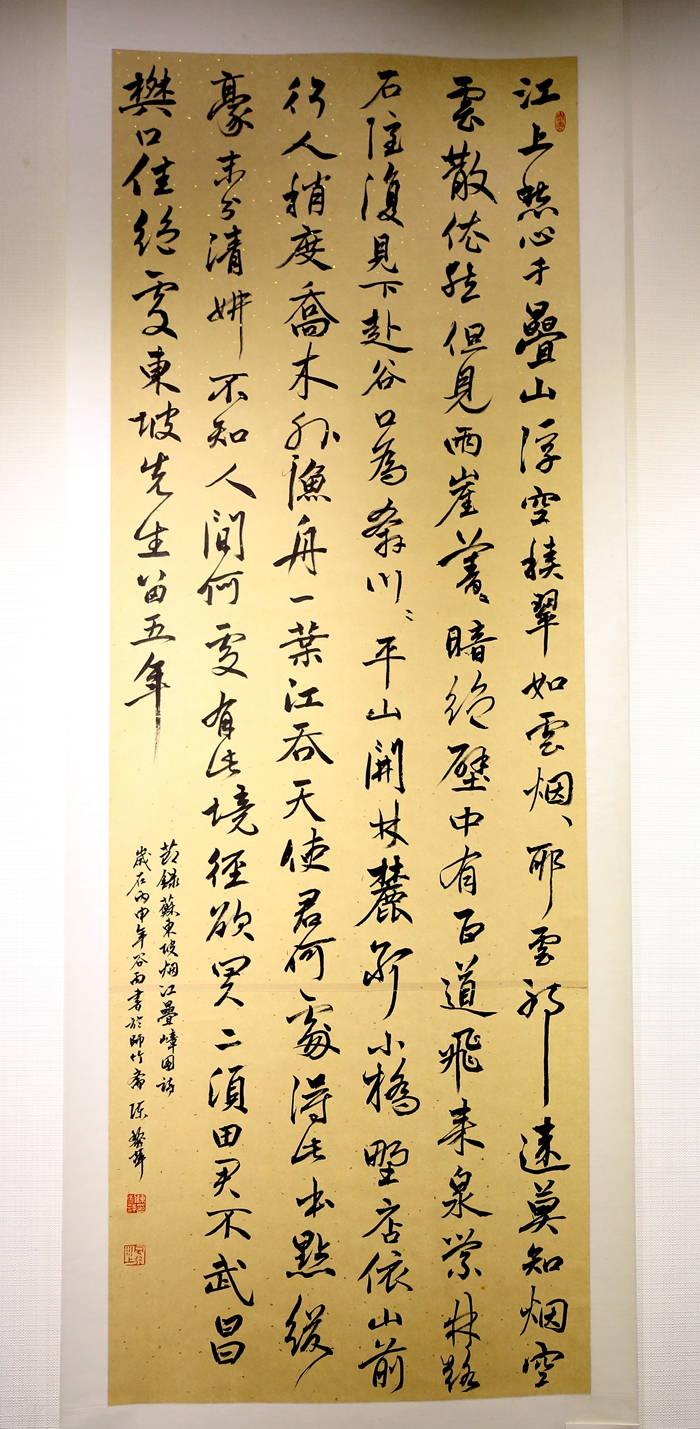 江上愁心千疊山浮空積翠如雲烟、耶雲耶遠莫知烟空
雲散依然但見兩崖蒼〻暗絕壁中有百道飛來泉縈林絡
石隱復見下赴谷口為奔川〻平山開林麓斷小橋野店依山前
行人稍度喬木外漁舟一葉江吞天使君何處得此本點綴
豪末分清妍不知人間何處有此境徑欲買二頃田君不武昌
樊口佳絕處東坡先生留五年
節錄蘇東坡烟江疊嶂圖詩
歲在丙申年谷雨書於師竹齋陳